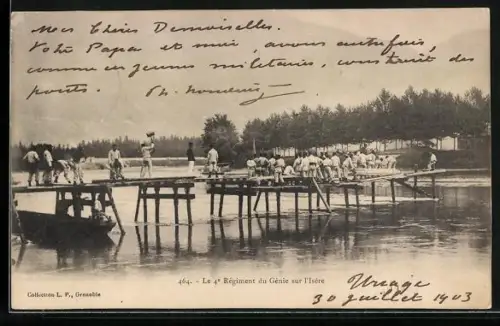 Mes Chères Demoiselles.
Votre Papa et moi, avons autrefois,
comme ces jeunes militaires, construit des
ponts.
464. - Le 4e Régiment du Génie sur l'Isère
Collection L. P., Grenoble
Uriage
30 juillet 1903